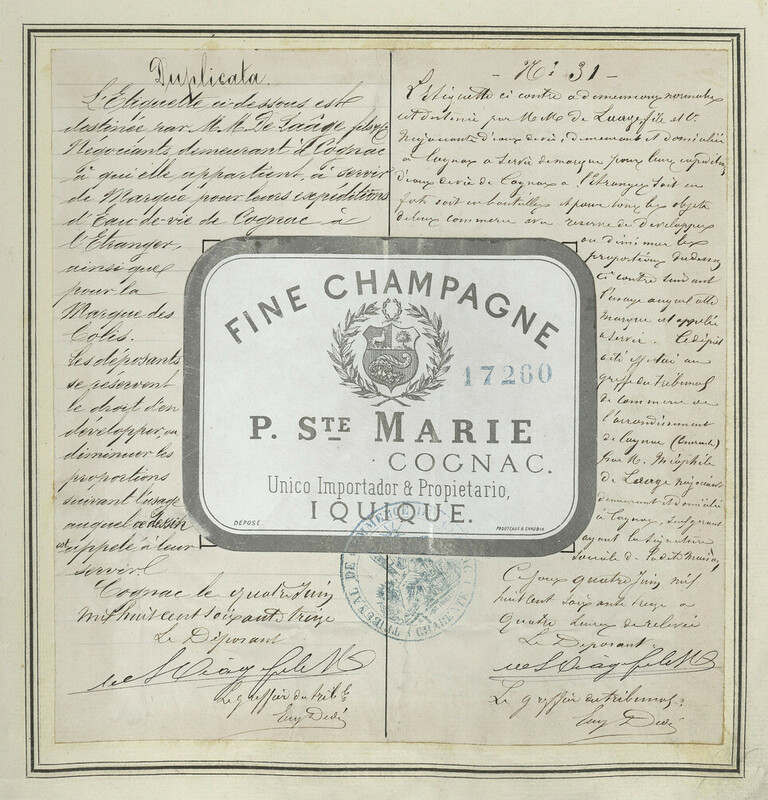 Duplicata.
L'Etiquette ci-dessous est
destinée par M. M. De Luäge fils & Cie
Négociants, demeurant à Cognac
à qui elle appartient, à servir
de Marque pour leurs expéditions
d'Eau-de-vie de Cognac à
l'Etranger,
ainsi que
pour la
Marque des
Colis.
Les déposants
se réservent
le droit d'en
développer, ou
diminuer les
proportions
suivant l'usage
auquel ce dessin
est appelé à leur
servir.
Cognac le quatre Juin
mil huit cent soixante treize
Le Déposant
Le greffier du trib.
- No. 31 -
L'étiquette ci contre a dimensions normales
est destinée par M. M. de Luage, fils et Cie
Négociants d'eaux de vie, demeurant et domiciliés
à Cognac a servir de marque pour leurs expéditions
d'eaux de vie de Cognac a l'étranger soit en
futs soit en bouteilles et pour tous les objets
de leur commerce avec reserve de developper
ou diminuer les
proportions du dessin
ci contre suivant
l'usage auquel cette
marque est appelée
a servir. Ce dépôt
a été effectué au
greffe du tribunal
de commerce de
l'arrondissement
de Cognac (Charente)
par M. Théophile
de Luage négociant
demeurant et domicilié
à Cognac,
ayant la signature
sociale de la dite maison,
Ce jour quatre Juin mil
huit cent soixante treize a
quatre heures de relevée
Le Déposant
Le greffier du tribunal
FINE CHAMPAGNE
17260
P. STE MARIE
COGNAC.
Unico Importador & Propietario,
IQUIQUE.
DÉPOSÉ.
PROUTEAUX & CHAUBIN
TRIBUNAL DE COMMERCE
CHARENTE